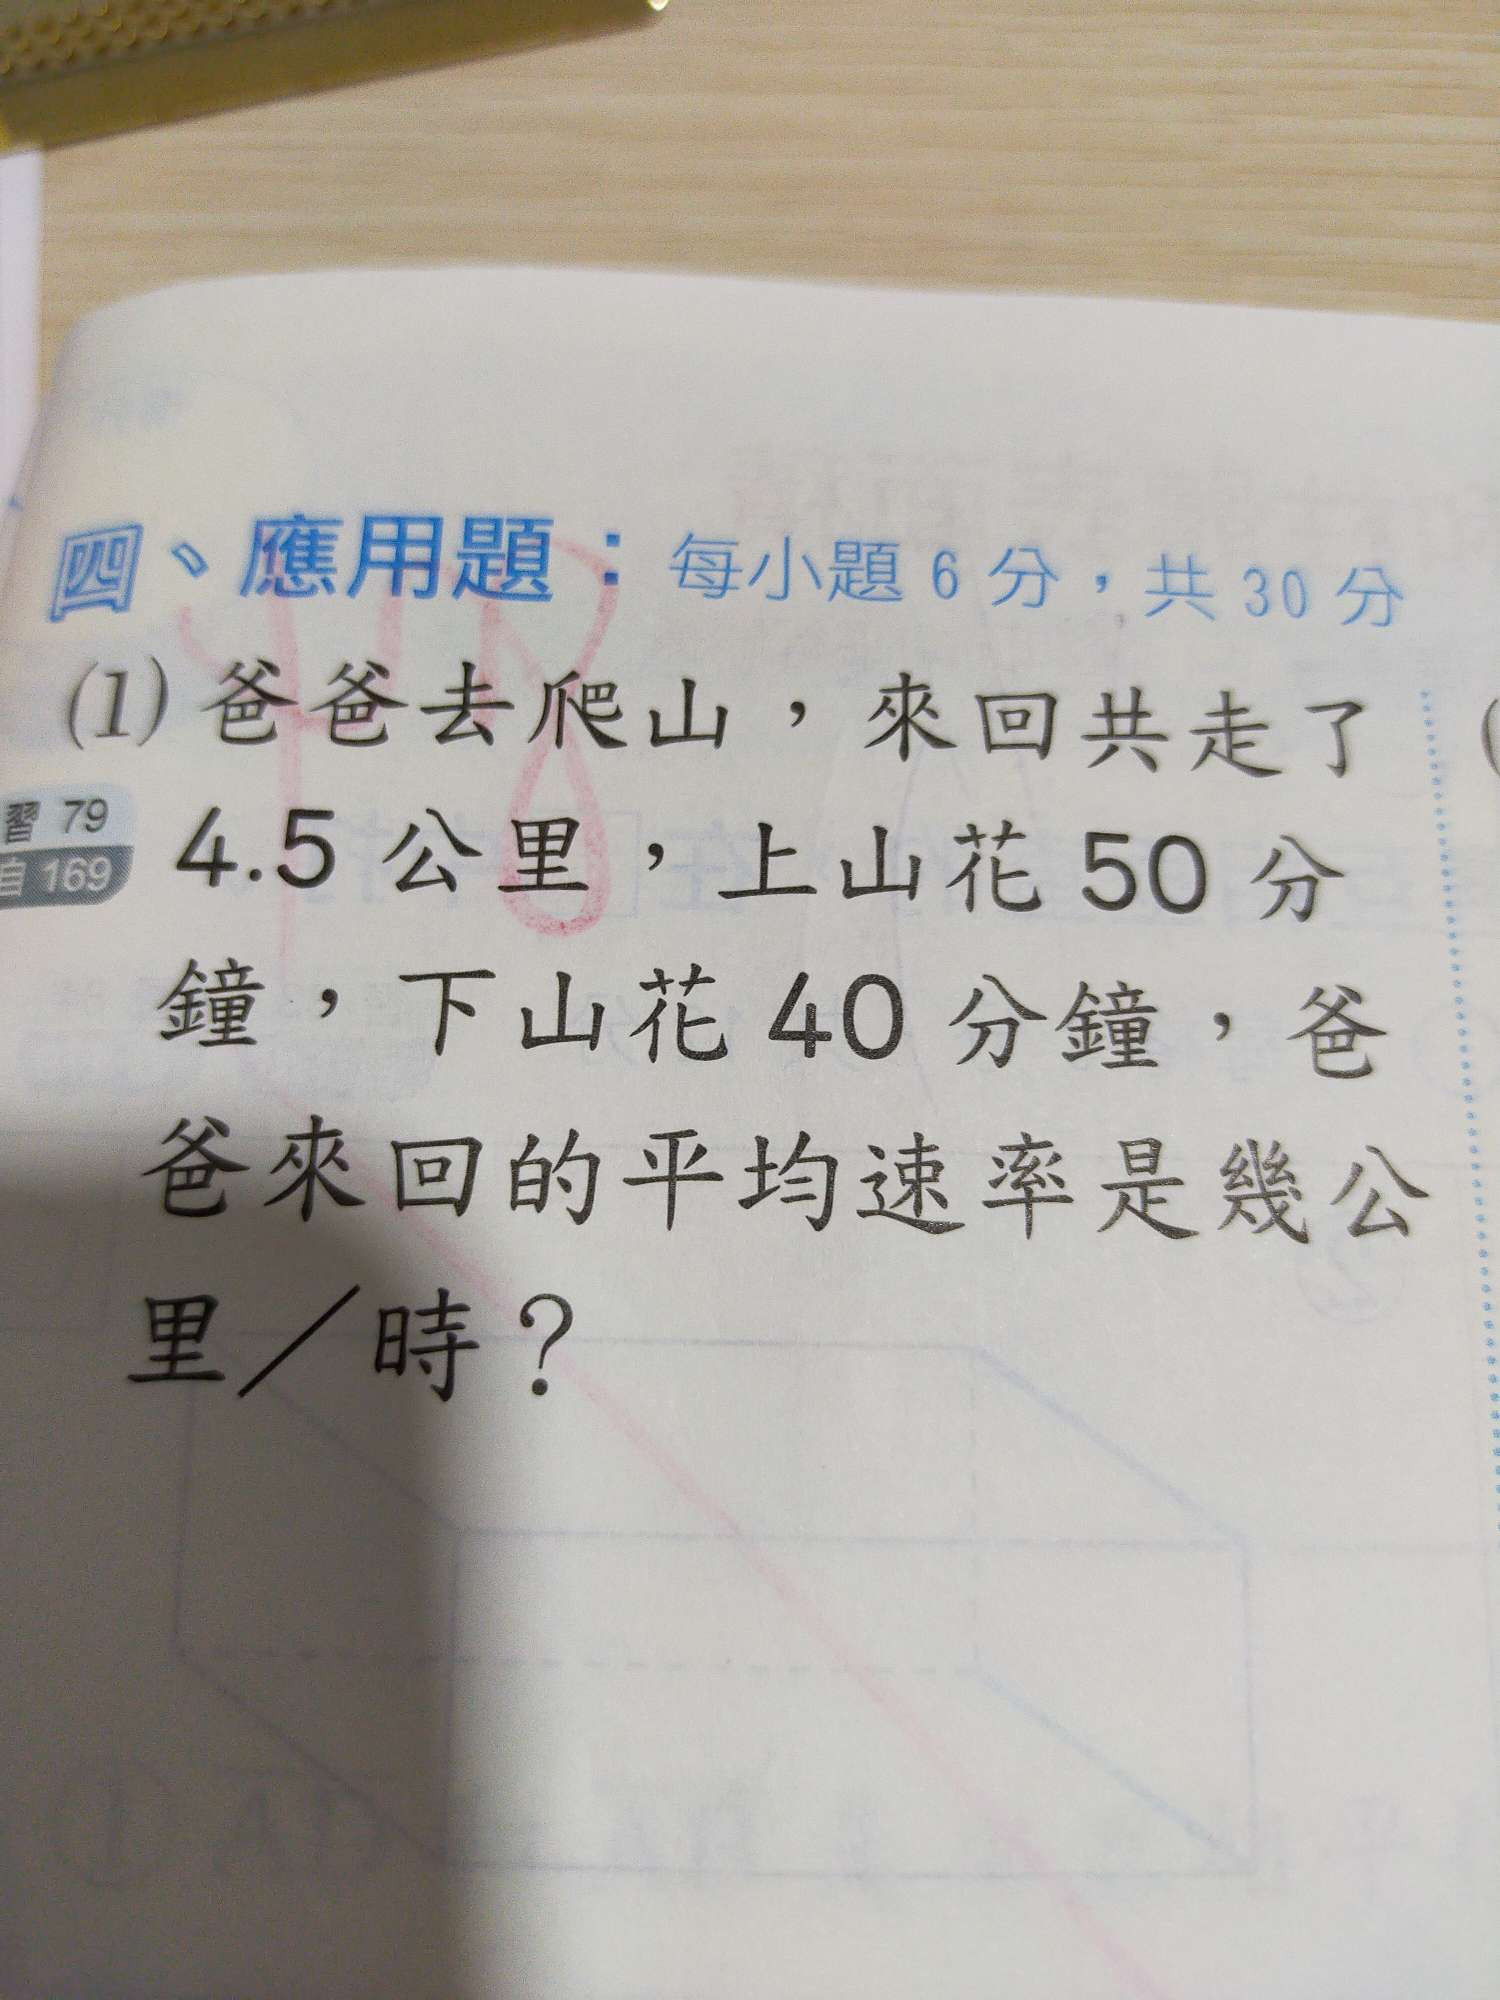 四、應用題：每小題 6 分，共 30 分
(1) 爸爸去爬山，來回共走了
習 79
自 169
4.5 公里，上山花 50 分
鐘，下山花 40 分鐘，爸
爸來回的平均速率是幾公
里／時？